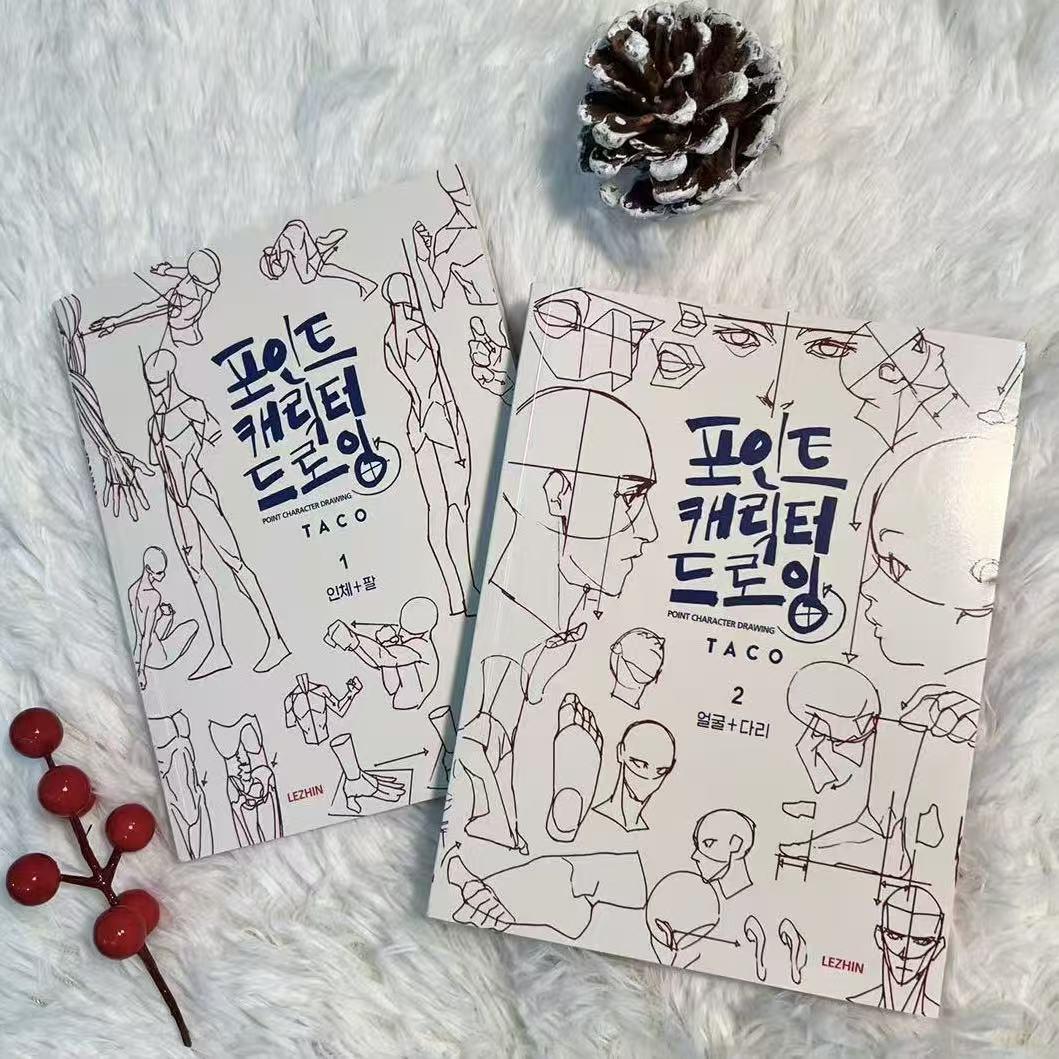 포인트
캐릭터
드로잉
POINT CHARACTER DRAWING
TACO
1
인체+팔
LEZHIN
포인트
캐릭터
드로잉
POINT CHARACTER DRAWING
TACO
2
얼굴+다리
LEZHIN